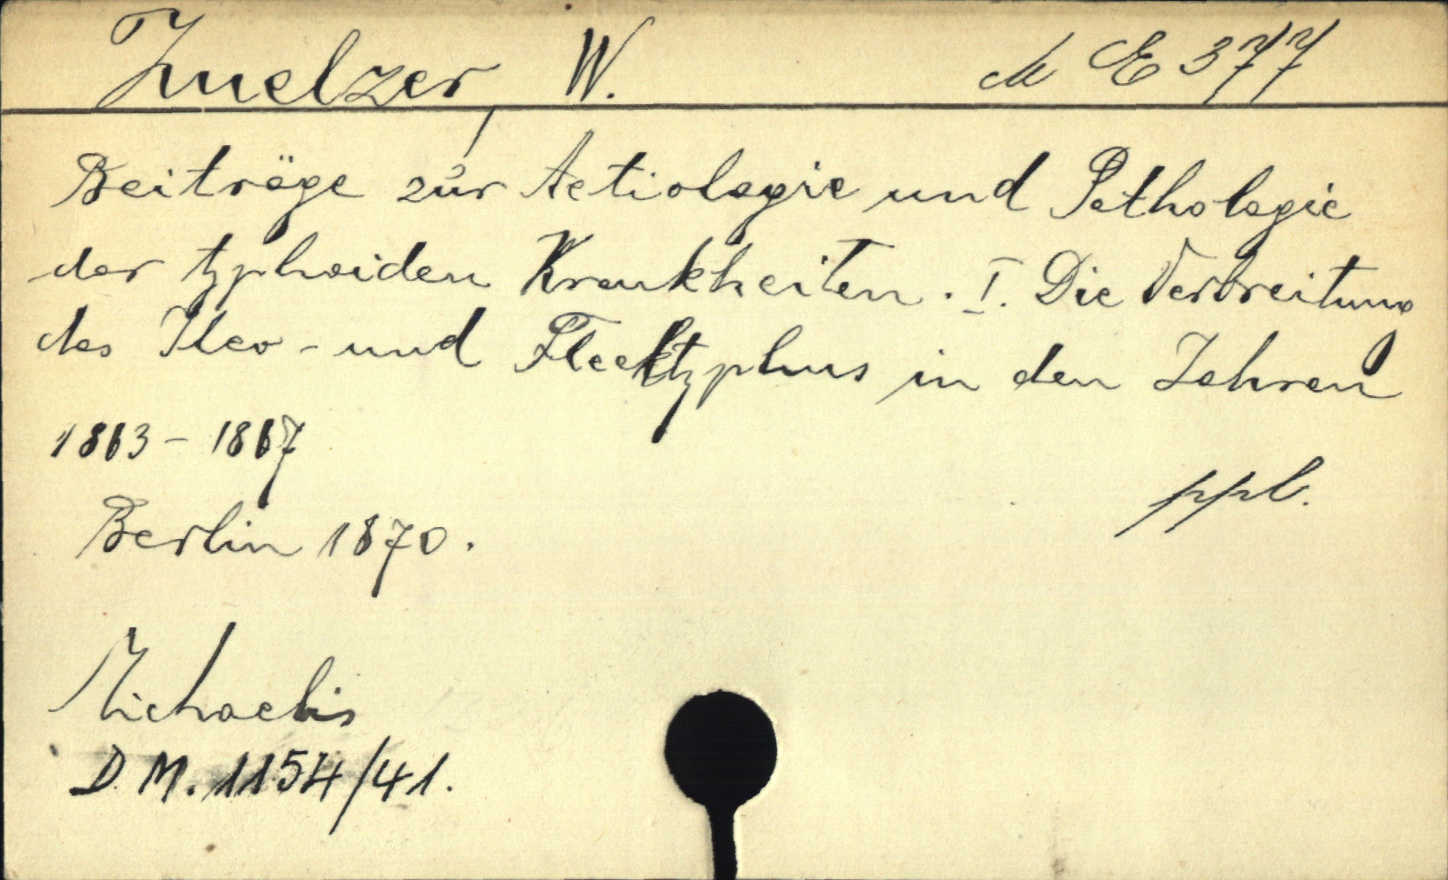 Zuelzer, W. M E 377
Beiträge zur Aetiologie und Pathologie
der typhoiden Krankheiten. I. Die Verbreitung
des Ileo- und Flecktyphus in den Jahren
1863 - 1867
ppb.
Berlin 1870.
Michaelis
D. M. 1154/41.